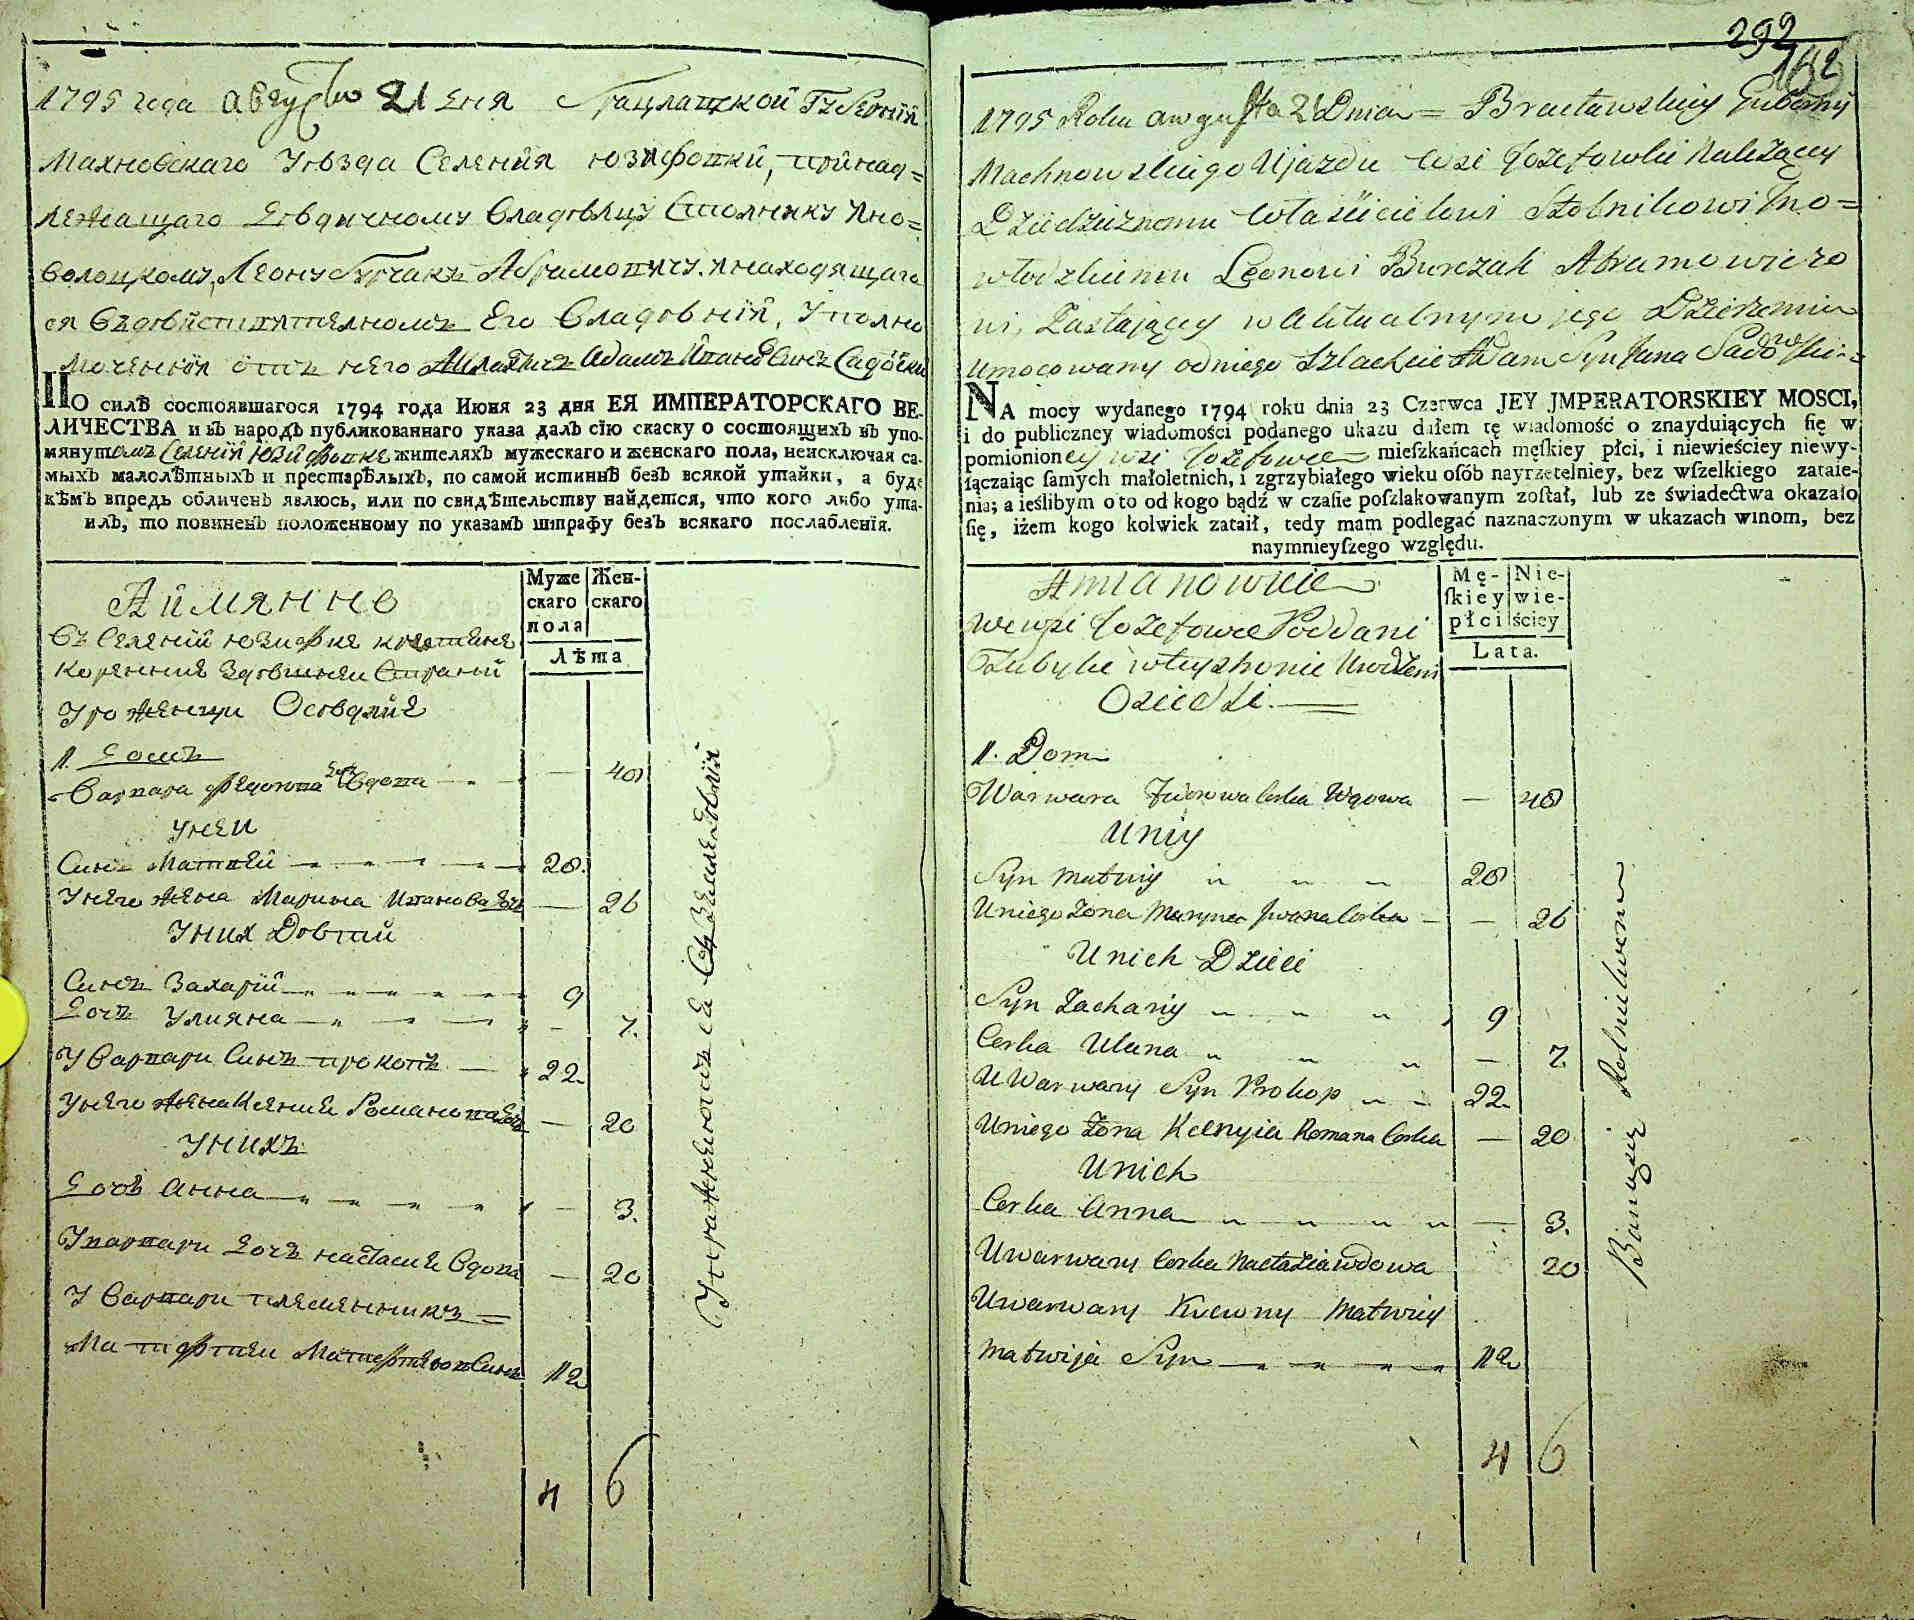 1795 года августо 21 дня Брацлавской Губернїй
Махновскаго Уѣзда Селенїя юзифовки, принад=
лежащаго дѣдичному владѣлцу Столнику Ино=
волоцкому, Леону Бурчакъ Абрамовичу. инаходящаго
ся въдѣйствителномъ Его владѣнїй, Уполно
моченнїй отъ него Адамъ Ивановъ Синъ
ПО силѣ состоявшагося 1794 года Июня 23 дня ЕЯ ИМПЕРАТОРСКАГО ВЕ-
ЛИЧЕСТВА и въ народъ публикованнаго указа далъ сїю скаску о состоящихъ въ упо-
мянутомъ Селенїй Юзифовке жителяхъ мужескаго и женскаго пола, неисключая са-
мыхъ малолѣтныхъ и престарѣлыхъ, по самой истиннѣ безъ всякой утайки, а буде
кѣмъ впредь обличенъ явлюсь, или по свидѣтельству найдется, что кого либо ута-
илъ, то повиненъ положенному по указамъ штрафу безъ всякаго послабленїя.
Аймянно
Муже Жен-
скаго скаго
пола
Лѣта
въ Селенїй юзифке
коренние здѣшнеи Страни
Уроженци Оседлие
1. домъ
Варвара Федорова дочъ вдова — 40
Унеи
Синъ Матвей 20.
Унего жена Марина Иванова дочъ — 26
Уних Дѣтий
Синъ Захарїй 9
Дочъ Улияна — 7.
У Варвари Синъ прокопъ — 22
Унего жена Ксение Романова дочъ — 20
Унихъ
Дочъ Анна — 3.
Уварвари дочъ настасие вдова — 20
У Варвари племенникъ =
Матфтеи Синъ 12
4 6
Упражняются въ Хлебопашествѣ
292
162
1795 Roku augusta 21 Dnia = Bracławskiey Guberny
Machnowskiego Ujazdu wsi Jozefowki Należącey
Dziedzicznemu właścicielowi Stolnikowi Ino=
włodzkiemu Leonowi Burczak Abramowiczo
wi, Zastający w aktualnym jego Dzierżeniu
umocowany odniego Szlachcic Adam Syn Jana Sadowski
NA mocy wydanego 1794 roku dnia 23 Czerwca JEY JMPERATORSKIEY MOSCI,
i do publiczney wiadomości podanego ukazu dałem tę wiadomość o znayduiących ſię w
pomionioney wsi Jozefowce mieſzkańcach męſkiey płci, i niewieściey niewy-
łączaiąc ſamych małoletnich, i zgrzybiałego wieku oſób nayrzetelniey, bez wſzelkiego zataie-
nia; a ieślibym o to od kogo bądź w czaſie poſzlakowanym zoſtał, lub ze świadectwa okazało
ſię, iżem kogo kolwiek zataił, tedy mam podlegać naznaczonym w ukazach winom, bez
naymnieyſzego względu.
Amianowicie
Mę- Nie-
ſkiey wie-
płci ściey
Lata.
we wsi Jozefowce Poddani
Urodzeni
Osiedli.
1. Dom
Warwara Fedorowa Corka Wdowa — 40
Uniy
Syn Matwiy 20
Uniego Zona Maryna Iwana Corka — 26
Unich Dzieci
Syn Zachariy 9
Corka Ulana — 7.
U Warwary Syn Prokop 22
Uniego Zona Kseniya Romana Corka — 20
Unich
Corka Anna — 3.
Uwarwary Corka Nastazia wdowa 20
Uwarwary Krewny Matwiey
Matwija Syn 12
4 6
Bawią się Rolnictwem